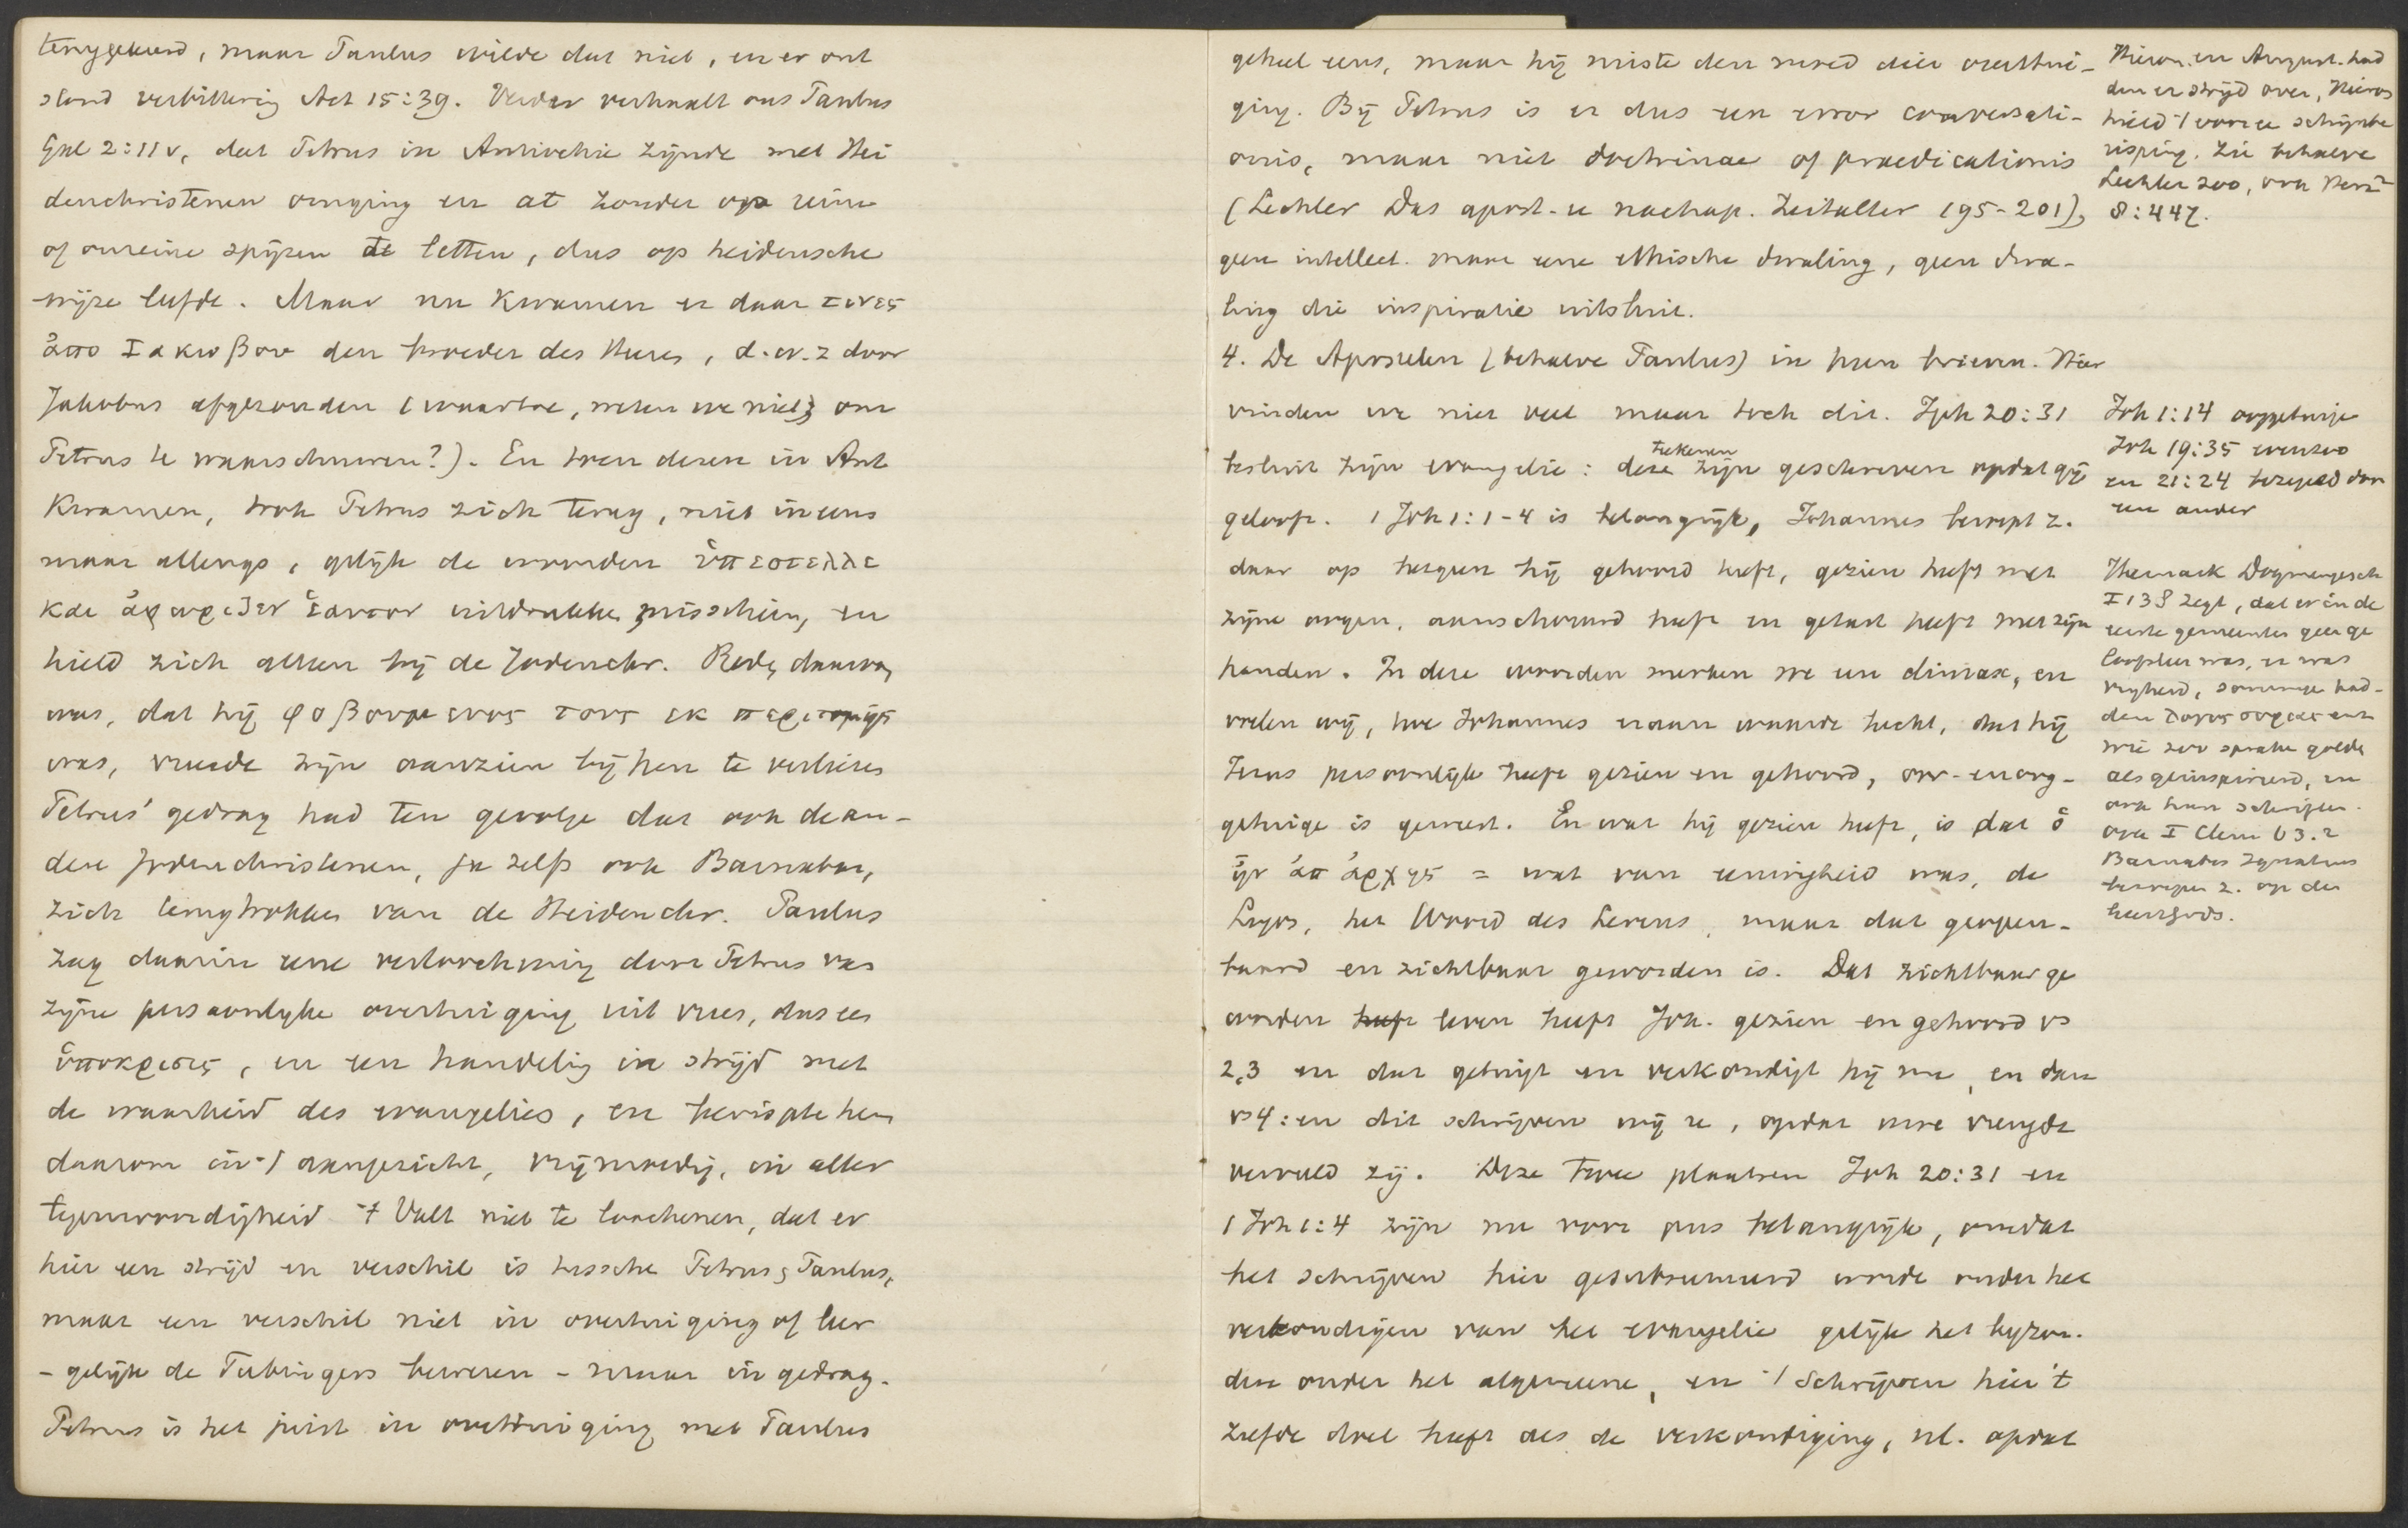 teruggekeerd, maar Paulus wilde dat niet, en er ont
stond verbittering Act 15:39. Verder verhaalt ons Paulus
Gal 2:11v, dat Petrus in Antiochie zijnde met Hei
denchristenen omging en at zonder op reine
of onreine spijzen te letten, dus op heidensche
wijze leefde. Maar nu kwamen er daar τινες
ἀπο Ιακωβου den broeder des Heeren, d.w.z door
Jakobus afgezonden (waartoe, weten we niet; om
Petrus te waarschuwen?). En toen dezen in Ant
kwamen, trok Petrus zich terug, niet ineens
maar allengs, gelijk de woorden ὑπεστελλε
και ἀφωριζεν ἑαυτον uitdrukken misschien, en
hield zich alleen bij de Jodenchr. Reden daarvan
was, dat hij φοβουμενος τους εκ περιτομης
was, vreesde zijn aanzien bij hen te verliezen
Petrus' gedrag had ten gevolge dat ook de an-
dere Jodenchristenen, ja zelfs ook Barnabas,
zich terugtrokken van de Heidenchr. Paulus
zag daarin eene verloochening door Petrus van
zijne persoonlijke overtuiging uit vrees, dus een
ὑποκρισις, en een handeling in strijd met
de waarheid des evangelies, en berispte hem
daarom in 't aangezicht, vrijmoedig, in aller
tegenwoordigheid 't Valt niet te loochenen, dat er
hier een strijd en verschil is tussche Petrus & Paulus,
maar een verschil niet in overtuiging of leer
- gelijk de Tubingers beweren - maar in gedrag.
Petrus is het juist in overtuiging met Paulus
geheel eens, maar hij miste den moed dier overtui-
ging. Bij Petrus is er dus een error conversati-
onis, maar niet doctrinae of praedicationis
(Lechler Das apost. u nachap. Zeitalter 195-201),
geen intellect. maar eene ethische dwaling, geen dwa-
ling die inspiratie uitsluit.
4. De Apostelen (behalve Paulus) in hun brieven. Hier
vinden we niet veel maar toch dit. Joh 20:31
tekenen
besluit zijn evangelie: deze zijn geschreven opdat gij
gelooft. 1 Joh 1:1-4 is belangrijk, Johannes beroept z.
daar op hetgeen hij gehoord heeft, gezien heeft met
zijne oogen, aanschouwd heeft en getast heeft met zijn
handen. In deze woorden merken we een climax, en
voelen wij, hoe Johannes eraan waarde hecht, dat hij
Jezus persoonlijk heeft gezien en gehoord, oor- en oog-
getuige is geweest. En wat hij gezien heeft, is dat ὁ
ἠν ἀπ ἀρχης = wat van eeuwigheid was, de
Logos, het Woord des Levens, maar dat geopen-
baard en zichtbaar geworden is. Dat zichtbaar ge
worden heeft leven heeft Joh. gezien en gehoord vs
2,3 en dat getuigt en verkondigt hij nu, en dan
vs 4: en dit schrijven wij u, opdat uwe vreugde
vervuld zij. Deze twee plaatsen Joh 20:31 en
1 Joh 1:4 zijn nu voor ons belangrijk, omdat
het schrijven hier gesubsumeerd wordt onder het
verkondigen van het evangelie gelijk het byzon-
dere onder het algemeene, en 't Schrijven hier 't
zelfde doel heeft als de verkondiging, nl. opdat
Hieron. en August. had
den er strijd over, Hieron
hield 't voor een schijnbe
risping. Zie behalve
Lechler 200, ook Herz²
8:447.
Joh 1:14 ooggetuige
Joh 19:35 evenzoo
en 21:24 bezegeld door
een ander
Harnack Dogmengesch
I 138 zegt, dat er in de
eerste gemeenten geen ge
loofsleer was, er was
vrijheid, sommige had-
den λογος σοφιας en
wie zoo sprake golden
als geinspireerd, en
ook hun schrijven.
ook I Clem 63.2
Barnabas Ignatius
beroepen z. op den